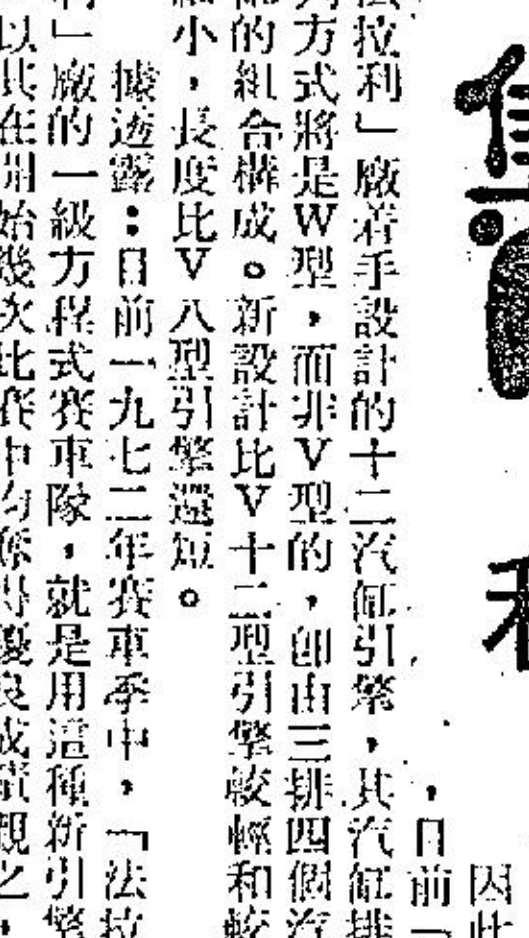 因此
，目前「
法拉利」廠着手設計的十二汽缸引擎，其汽缸排
列方式將是W型，而非V型的，卽由三排四個汽
的組合構成。新設計比V十二型引擎較輕和較
小，長度比V八型引擎還短。
據透露：目前一九七二年賽車季中，「法拉
利」廠的一級方程式賽車隊，就是用這種新引擎
以其在開始幾次比賽中均獲得優良成績觀之，